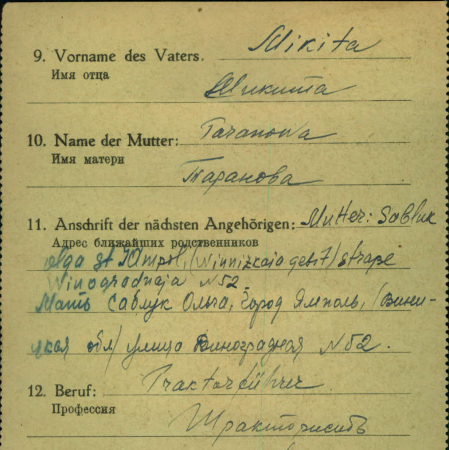 9. Vorname des Vaters. Mikita
Имя отца
Микита
10. Name der Mutter: Taranowa
Имя матери
Таранова
11. Anschrift der nächsten Angehörigen: Mutter: Sabluk
Адрес ближайших родственников
olga st. Jampol, (Winnizkaja gebit) straße
Winogradnaja N 52.
Мать Саблук Ольга, город Ямполь, (Вини-
цкая обл) улица Виноградная N 52.
12. Beruf: Traktorführer
Профессия
Тракторисить